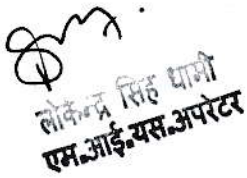 लोकेन्द्र सिंह धामी
एम.आई.यस.अपरेटर